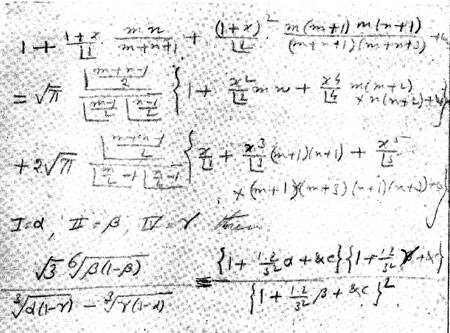 1 + (1+x)/⌊1 · mn/(m+n+1) + (1+x)²/⌊2 · m(m+1) n(n+1)/((m+n+1)(m+n+3)) + &c
= √π {1 + x²/⌊2 mn + x⁴/⌊4 m(m+2)
× n(n+2) + &c}
+ 2√π { x/⌊1 + x³/⌊3 (m+1)(n+1) + x⁵/⌊5
× (m+1)(m+3)(n+1)(n+3) + &c}
I=α, II=β, IV=γ then
√3 ⁶√β(1-β) / (³√α(1-γ) - ³√γ(1-α)) = {1 + 1·2/3² α + &c}{1 + 1·2/3² γ + &c} / {1 + 1·2/3² β + &c}²